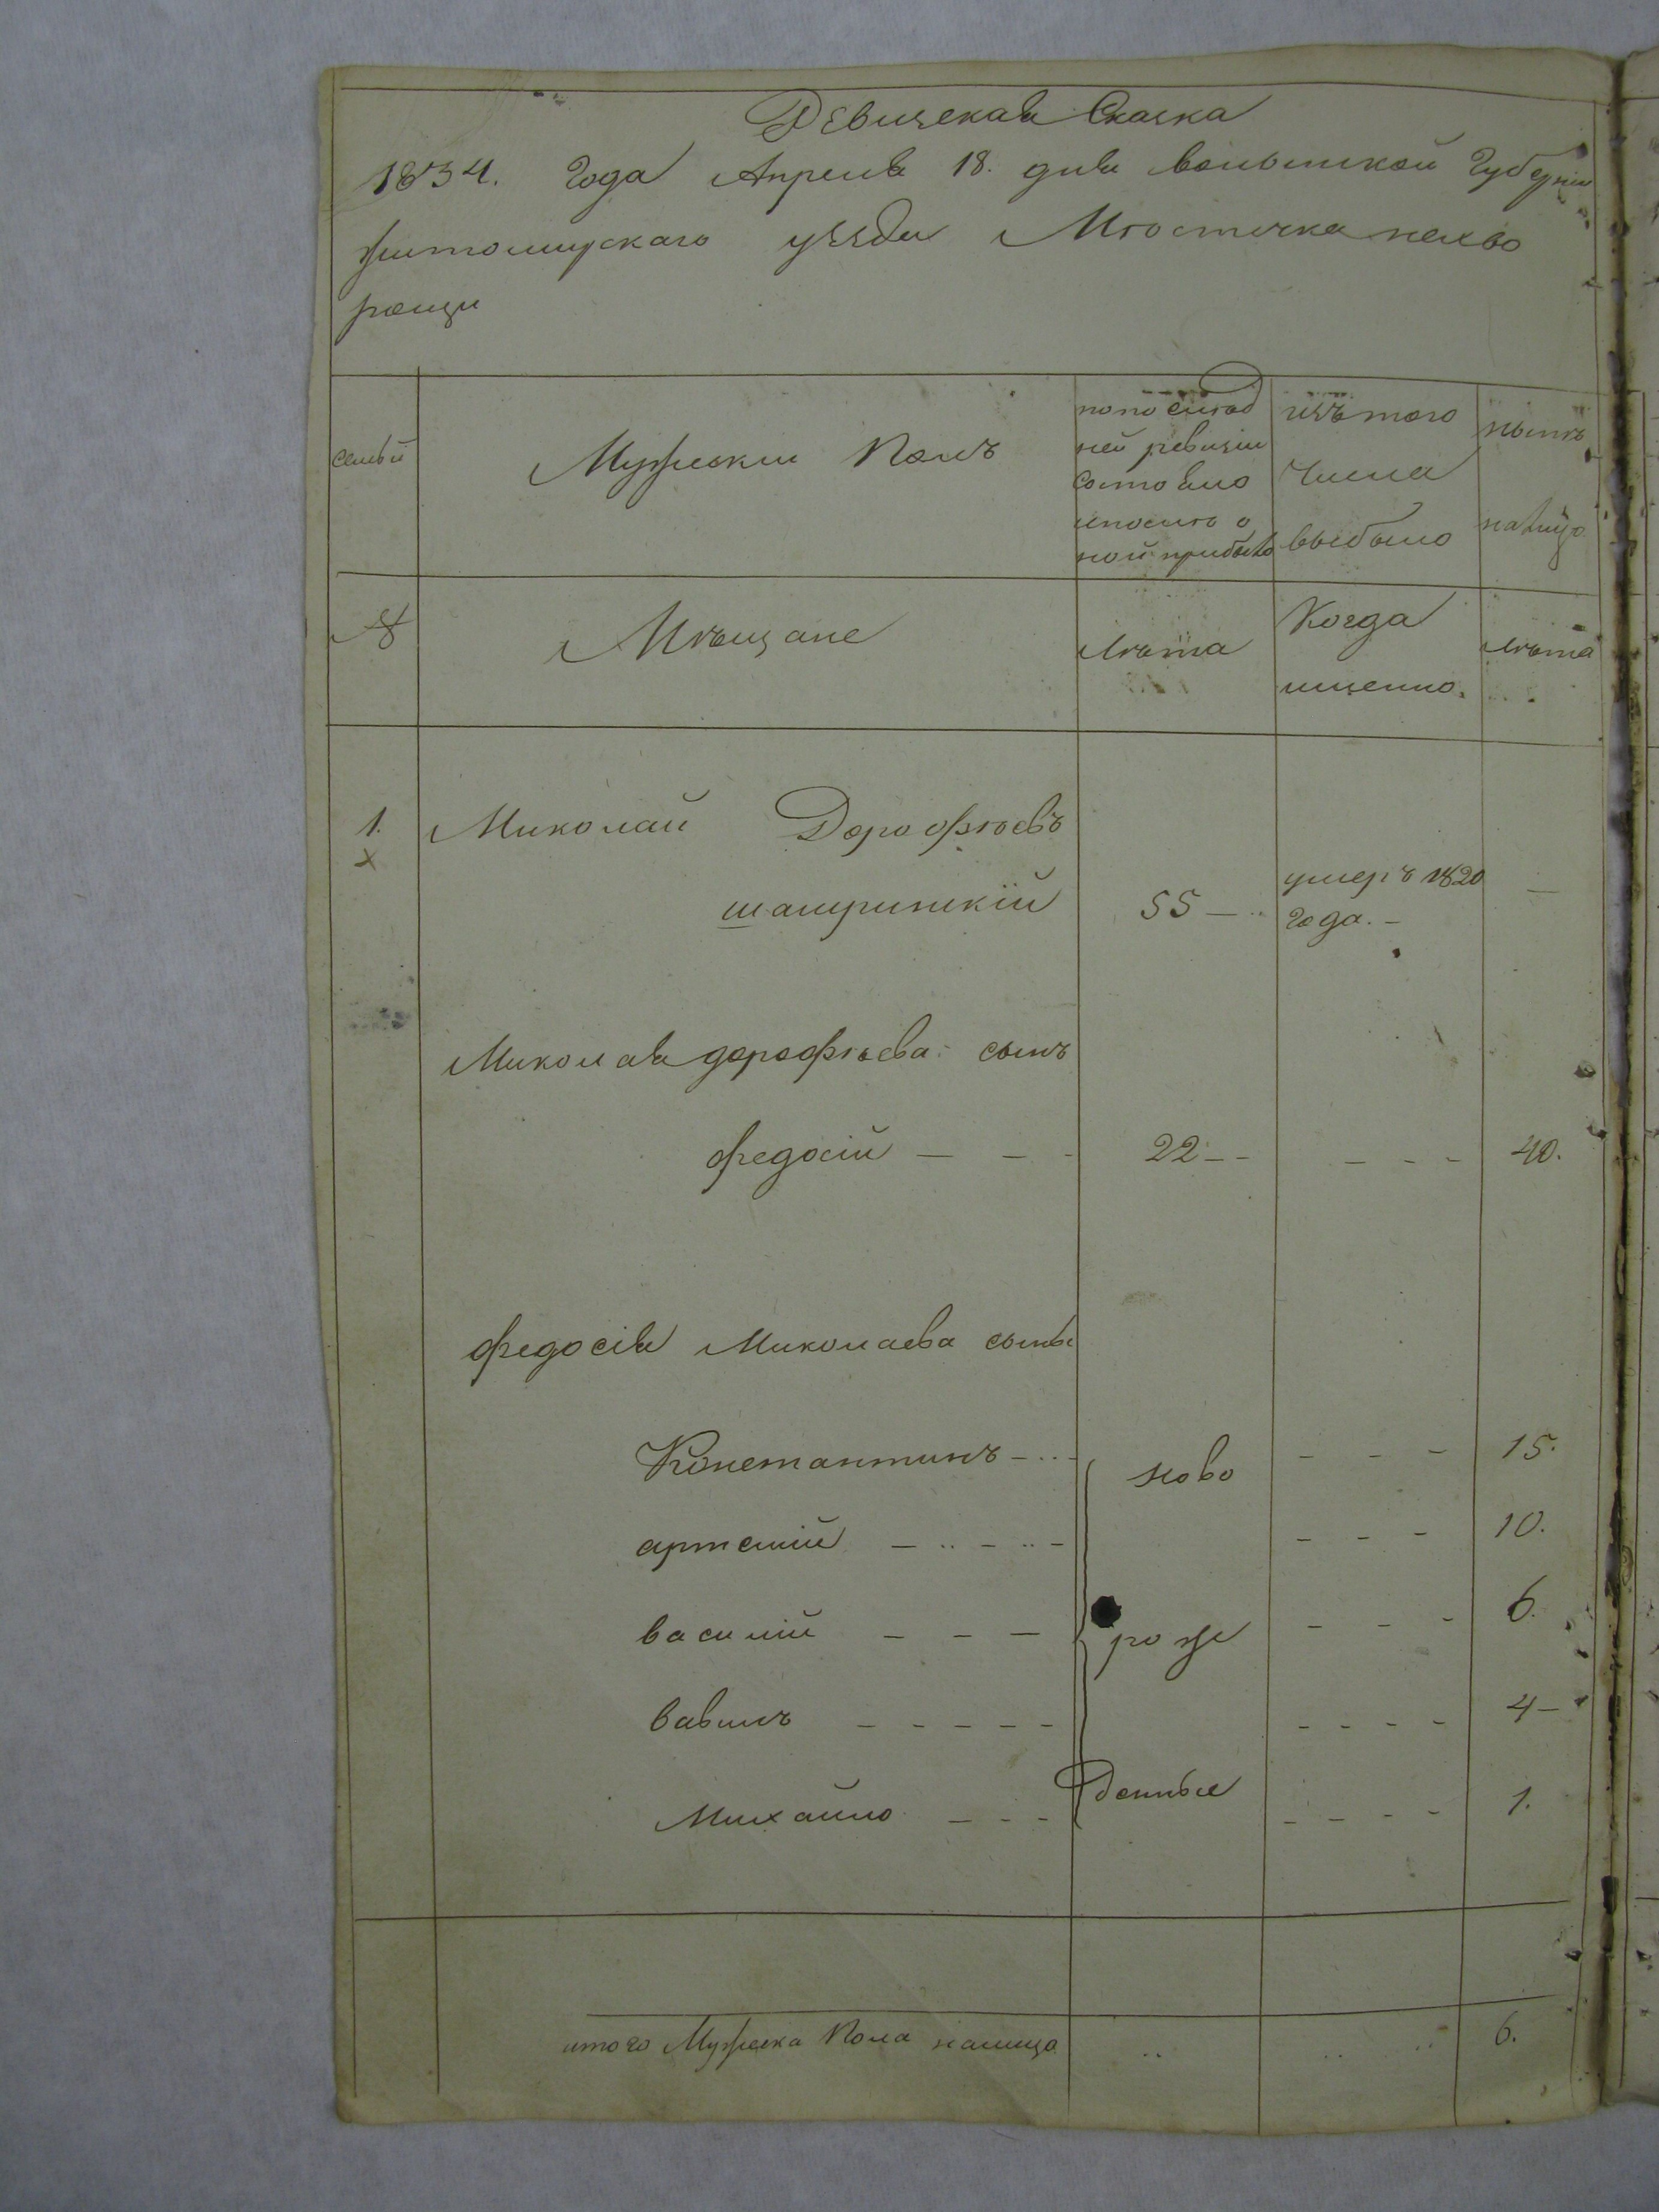 Ревизская Сказка
1834. Года Апреля 18. дня волынской Губернии
житомирскаго уезда Мѣстечка нехво
рощи
семьи
Мужески Полъ
по последъ
ней ревизiи
состояло
и после о
ной прибыло
изъ того
числа
выбыло
нынѣ
налицо
№
Мѣщане
лѣта
Когда
именно.
лѣта
1.
Миколай Дорофѣевъ
шамринскiй
55 —
умеръ 1820
года. –
—
Миколая дорофѣева сынъ
федосiй — – -
22 – -
– - -
40.
федосiя Миколаева сыны
Константинъ – ..
– - –
15.
артемiй – .. – .. –
– – –
10.
василiй – – —
– - -
6.
вавилъ – - – – –
- - - -
4 –
Михайло – - -
– – - –
1.
ново
рож
денные
итого Мужеска Пола налицо
6.